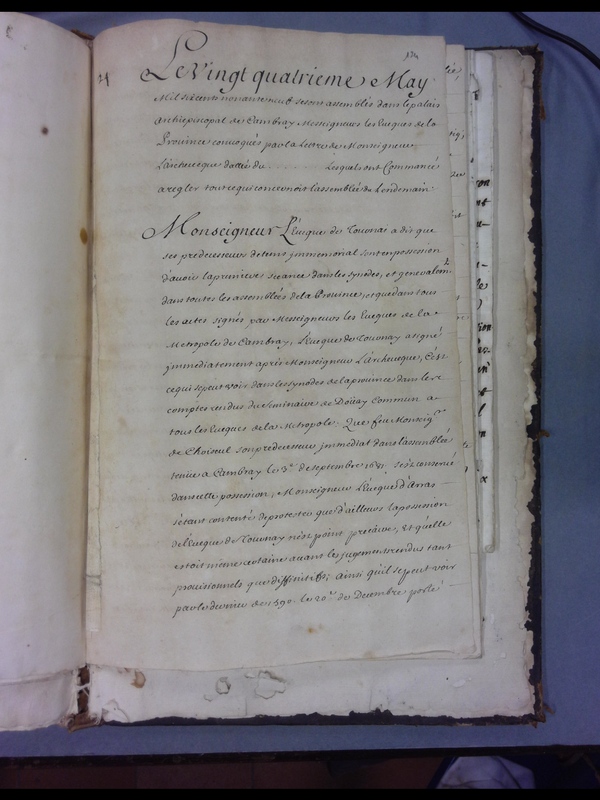 134
24
Le Vingt quatrieme May
Mil six cents nonante neuf se sont assemblés dans le palais
archiepiscopal de Cambray Messeigneurs les Eveques de la
Province convoqués par la Lettre de Monseigneur
L'archevecque dattée du . . . . . . . Lesquels ont Commancé
a regler tout ce qui concernoit l'assemblée du Lendemain
Monseigneur L'Eveque de Tournay a dit que
ses predecesseurs de tems immemorial sont en possession
d'avoir la premiere seance dans les synodes, et generalemt
dans toutes les assemblées de la Province, et que dans tous
les actes signés par Messeigneurs les Eveques de la
Metropole de Cambray, L'Eveque de Tournay a signé
immediatement aprés Monseigneur L'archevecque, C'est
ce qui se peut voir dans les synodes de la province dans les
comptes rendus du Seminaire de Doüay Commun a
tous les Eveques de la Metropole. Que feu Monseigr
de Choiseul son predecesseur immediat dans l'assemblée
tenüe a Cambray le 3e de septembre 1681. s'est conservé
dans cette possession, Monseigneur L'Eveque d'Arras
s'étant contenté de protester que d'ailleurs la possession
de l'Eveque de Tournay n'est point precaire, Et qu'elle
estoit meme notoire avant les jugements rendus tant
provisionnels que diffinitifs; ainsi qu'il se peut voir
par le dernier de 1590. le 20e de Decembre porté